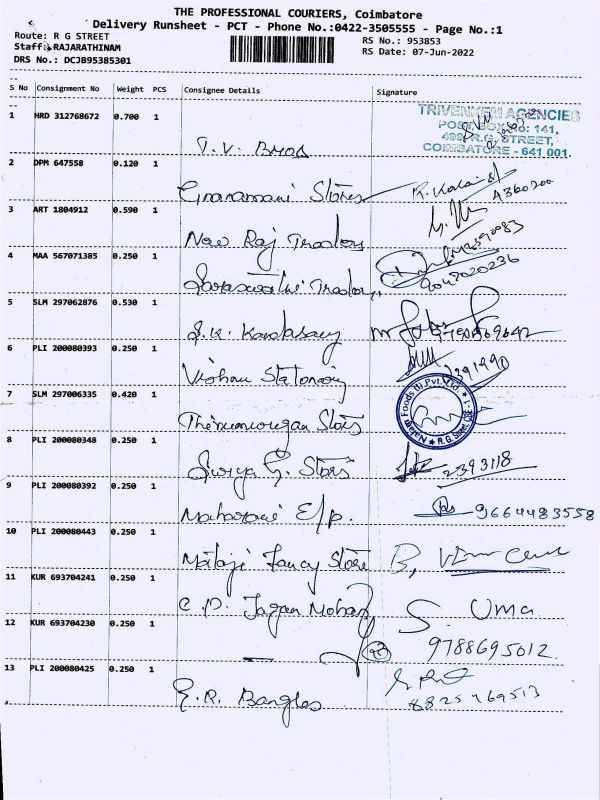 THE PROFESSIONAL COURIERS, Coimbatore
Delivery Runsheet - PCT - Phone No.:0422-3505555 - Page No.:1
Route: R G STREET
Staff: RAJARATHINAM
DRS No.: DCJB95385301
RS No.: 953853
RS Date: 07-Jun-2022
S No Consignment No Weight PCS Consignee Details Signature
1 HRD 312768672 0.700 1
T.V. Bros
TRIVENKEM AGENCIES
POST BOX No: 141,
R.G. STREET,
COIMBATORE - 641 001.
2 DPM 647558 0.120 1
Gnanamani Stores
4360200
3 ART 1804912 0.590 1
New Raj Traders
4 MAA 567071385 0.250 1
Saraswathi Traders
5 SLM 297062876 0.530 1
S.K. Kandasamy
6 PLI 200080393 0.250 1
Vishnu Stationary
2391990
7 SLM 297006335 0.420 1
Thirumurugan Stores
Foods (I) Pvt. Ltd
R.G. Street, CBE-1
8 PLI 200080348 0.250 1
Surya G. Stores
2393118
9 PLI 200080392 0.250 1
Maharani E/p.
9664483558
10 PLI 200080443 0.250 1
Mataji Fancy Store
B, Vimcent
11 KUR 693704241 0.250 1
C.P. Jagan Mohan
S. Uma
12 KUR 693704230 0.250 1
9788695012
13 PLI 200080425 0.250 1
E.R. Bangles
8825969513